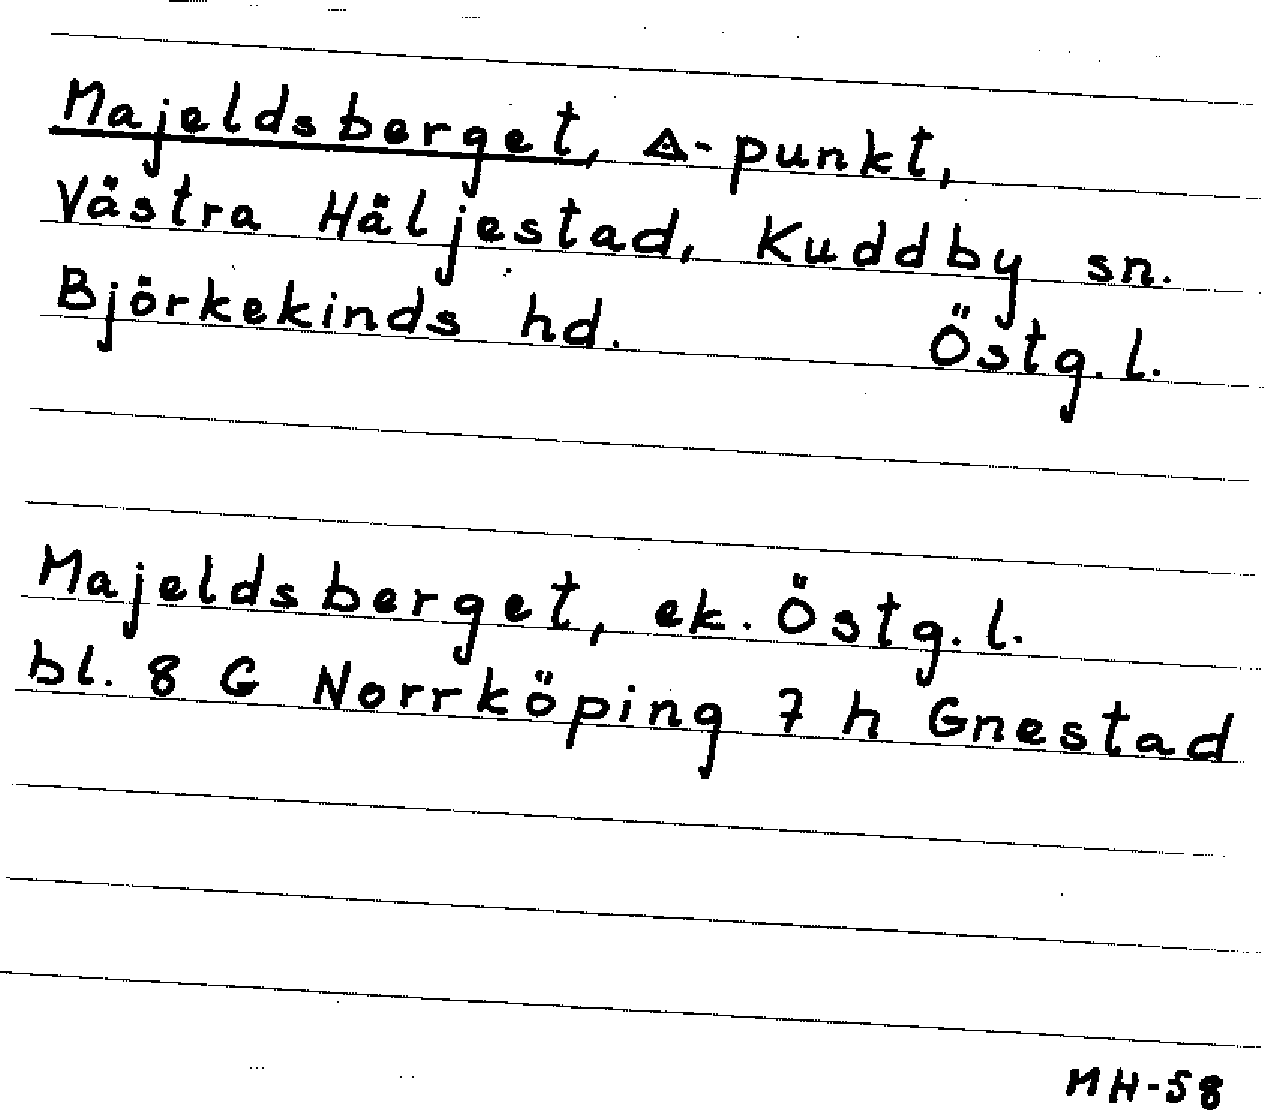 Majeldsberget, △-punkt,
Västra Häljestad, Kuddby sn.
Björkekinds hd. Östg. l.
Majeldsberget, ek. Östg. l.
bl. 8 G Norrköping 7 h Gnestad
MH-58